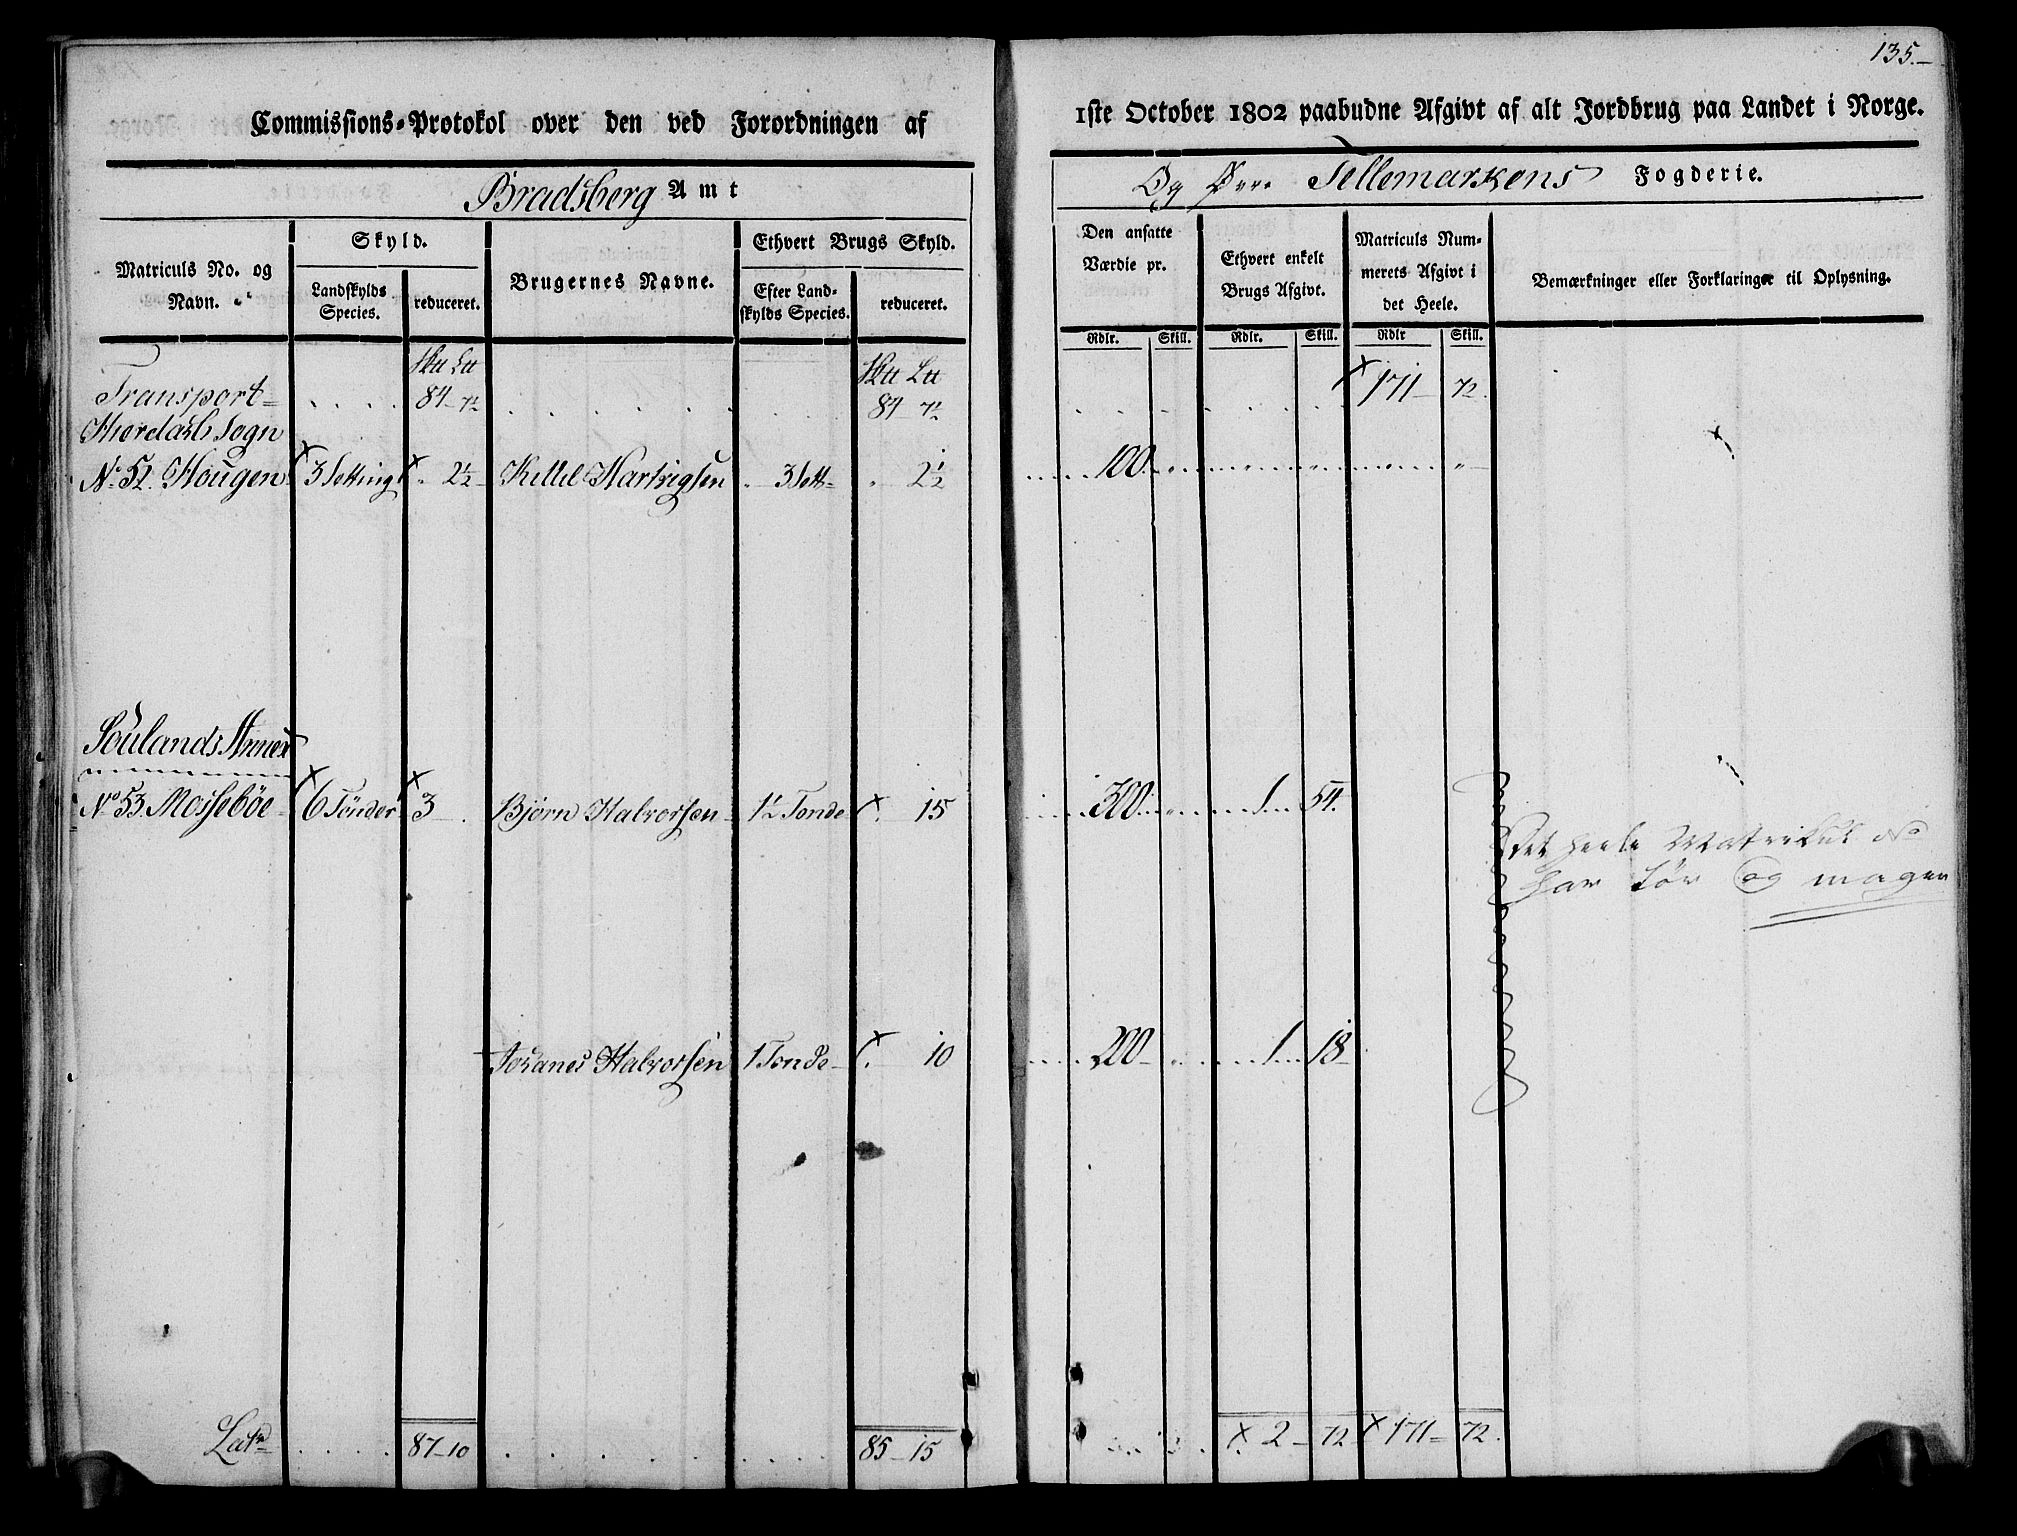 135.
Commissions-Protokol over den ved Forordningen af 1ste October 1802 paabudne Afgivt af alt Jordbrug paa Landet i Norge.
Bradsberg Amt
Og Øvre Tellemarkens Fogderie.
Matriculs No. og Navn.
Skyld.
Landskylds Species.
reduceret.
Brugernes Navne.
Ethvert Brugs Skyld.
Efter Landskylds Species.
reduceret.
Den ansatte Værdie pr.
Ethvert enkelt Brugs Afgivt.
Matriculs Nummerets Afgivt i det Heele.
Bemærkninger eller Forklaringer til Oplysning.
Rdlr. Skill. Rdlr. Skill. Rdlr Skill.
Transport 84 7½ 84 7½ 171 72.
Hierdahls Sogn
No 52. Hougen 3 Setting 2½ Kittil Hartvigsen 3 Sett 2½ 100
Soulands Annex
No 53. Mossebøe 6 Tønder 3 Bjørn Halvorsen 1½ Tønde 15 300 1 54.
Det heele Matrikul No
har Tør og mager
Johanes Halvorsen 1 Tønde 10 200 1 18
Latr 87 10 85 15 2 72 171 72.